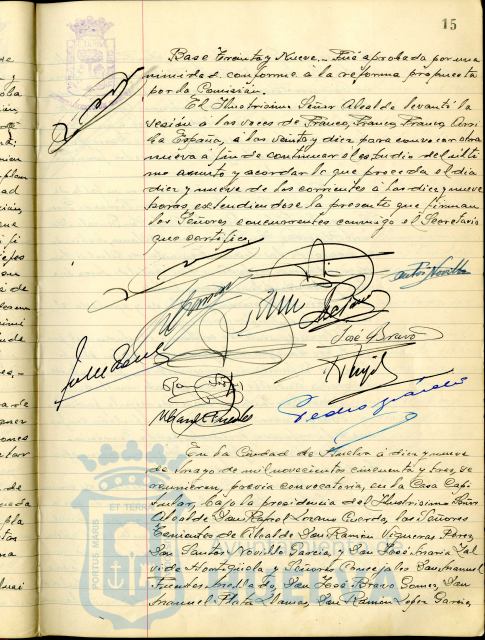 15
Base Treinta y Nueve.- Fué aprobada por una
nimidad conforme a la reforma propuesta
por la Comisión.
El Ilustrísimo Señor Alcalde levantó la
sesión a las voces de Franco, Franco, Franco, Arri
ba España, a las veinte y diez para convocar otra
nueva a fin de continuar el estudio del últi
mo asunto y acordar lo que proceda el día
diez y nueve de los corrientes a las diez y nueve
horas, extendiéndose la presente que firman
los Señores concurrentes conmigo el Secretario
que certifico.
José Bravo
En la Ciudad de Huelva a diez y nueve
de mayo de mil novecientos cincuenta y tres, se
reunieron, previa convocatoria, en la Casa Capi
tular, bajo la presidencia del Ilustrísimo Señor
Alcalde Don Rafael Lozano Cuerda, los Señores
Tenientes de Alcalde Don Ramón Vigueras Pérez,
Don Santos Novillo García y Don José María Jal
vi de Hontiguela y Señores Concejales Don Manuel
Fuentes Don José Bravo Gomez, Don
Manuel Plata Llamas, Don Ramón López García,
PORTUS MARIS
ET TERRAE